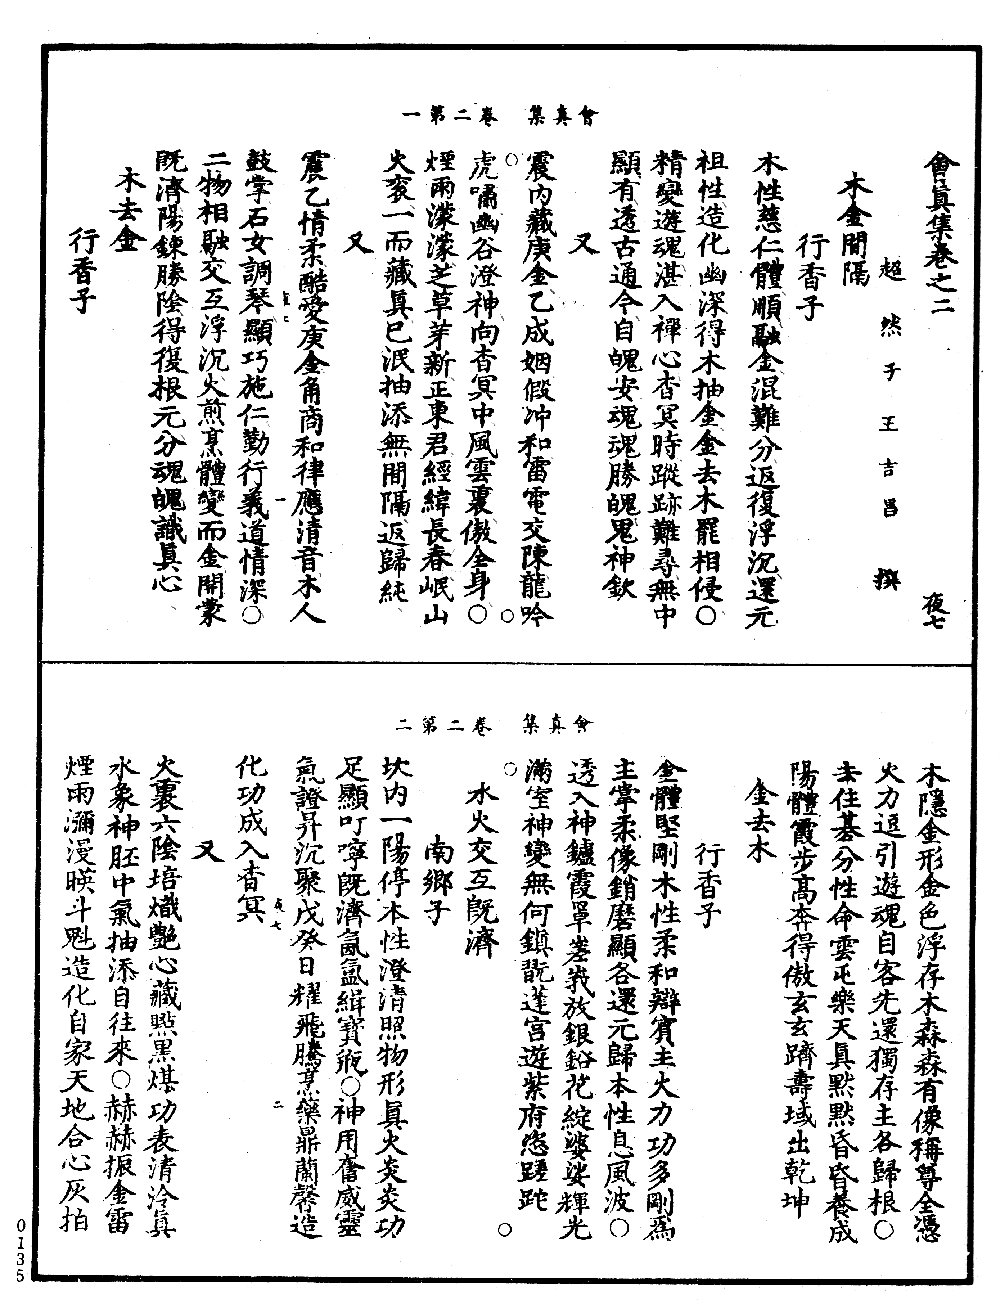 會真集 卷二第一
會真集卷之二
夜七
超然子王吉昌撰
木金間隔
行香子
木性慈仁體順融金混難分返復浮沉還元
祖性造化幽深得木抽金金去木罷相侵○
精變遊魂湛入禪心杳冥時蹤跡難尋無中
顯有透古通今自魄安魂魂勝魄鬼神欽
又
震內藏庚金乙成姻假冲和雷電交陳龍吟
虎嘯幽谷澄神向杳冥中風雲裏傲全身○
煙雨濛濛芝草芽新正東君經緯長春岷山
火衮一而藏真已泯抽添無間隔返歸純
又
震乙情柔酷愛庚金角商和律應清音木人
鼓掌石女調琴顯巧施仁勤行義道情深○
二物相融交互浮沉火煎烹體變而金開蒙
既濟陽鍊勝陰得復根元分魂魄識真心
木去金
行香子
會真集 卷二第二
木隱金形金色浮存木森森有像稱尊全憑
火力逗引遊魂自客先還獨存主各歸根○
去住基分性命雲屯樂天真默默昏昏養成
陽體霞步高奔得傲玄玄躋壽域出乾坤
金去木
行香子
金體堅剛木性柔和辯賓主火力功多剛為
主宰柔像銷磨顯各還元歸本性息風波○
透入神鑪霞罩峩放銀鉛花綻婆娑輝光
滿室神變無何鎮翫蓬宮遊紫府恣蹉跎
水火交互既濟
南鄉子
坎內一陽停本性澄清照物形真火炎炎功
足顯叮嚀既濟氤氳緝寶瓶○神用奮威靈
氣證昇沉聚戊癸日耀飛騰烹藥鼎蘭馨造
化功成入杳冥
又
火裏六陰培熾艷心藏照黑煤功表清泠真
水象神胚中氣抽添自往來○赫赫振金雷
煙雨瀰漫暎斗魁造化自家天地合心灰拍
0135